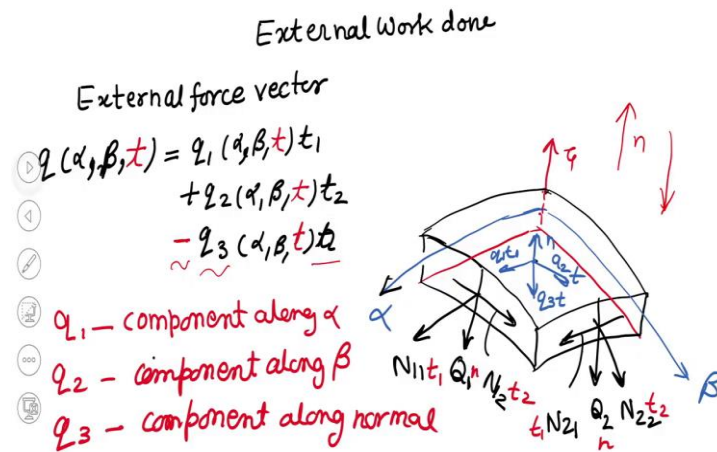 External work done
External force vector
q(α,β,t) = q₁(α,β,t)t₁
+q₂(α,β,t)t₂
-q₃(α,β,t)
q₁ - component along α
q₂ - component along β
q₃ - component along normal
n
n
q₁t₁
q₂t
q₃t
α
β
N11t₁ Q₁n N12t₂
t₁N21 Q₂n N22t₂